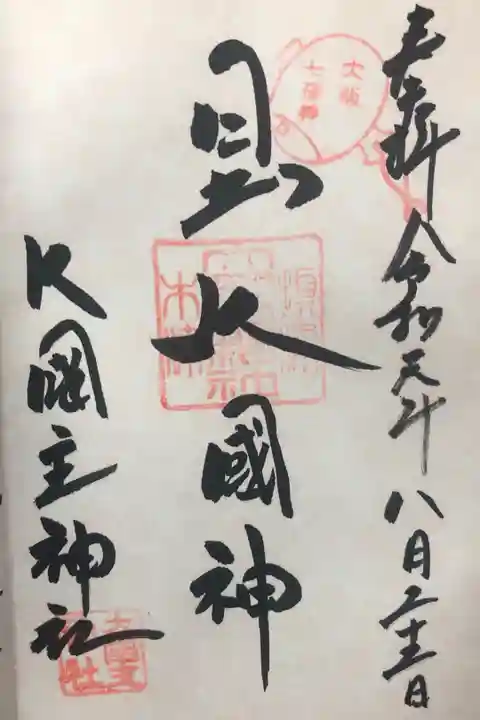 奉拝 令和元年八月二十五日
大阪
七福神
日出大國神
大國主神社